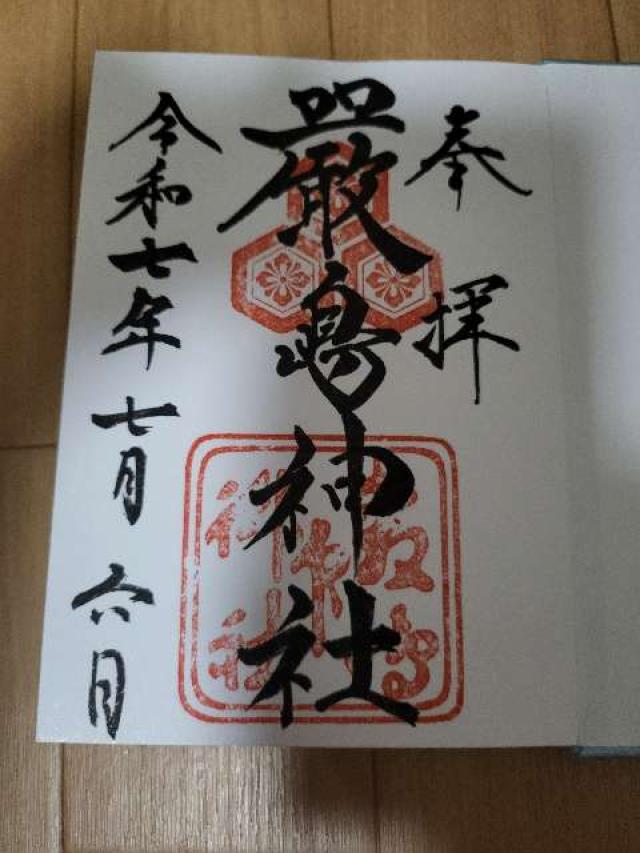 奉拝
厳島神社
令和七年七月六日